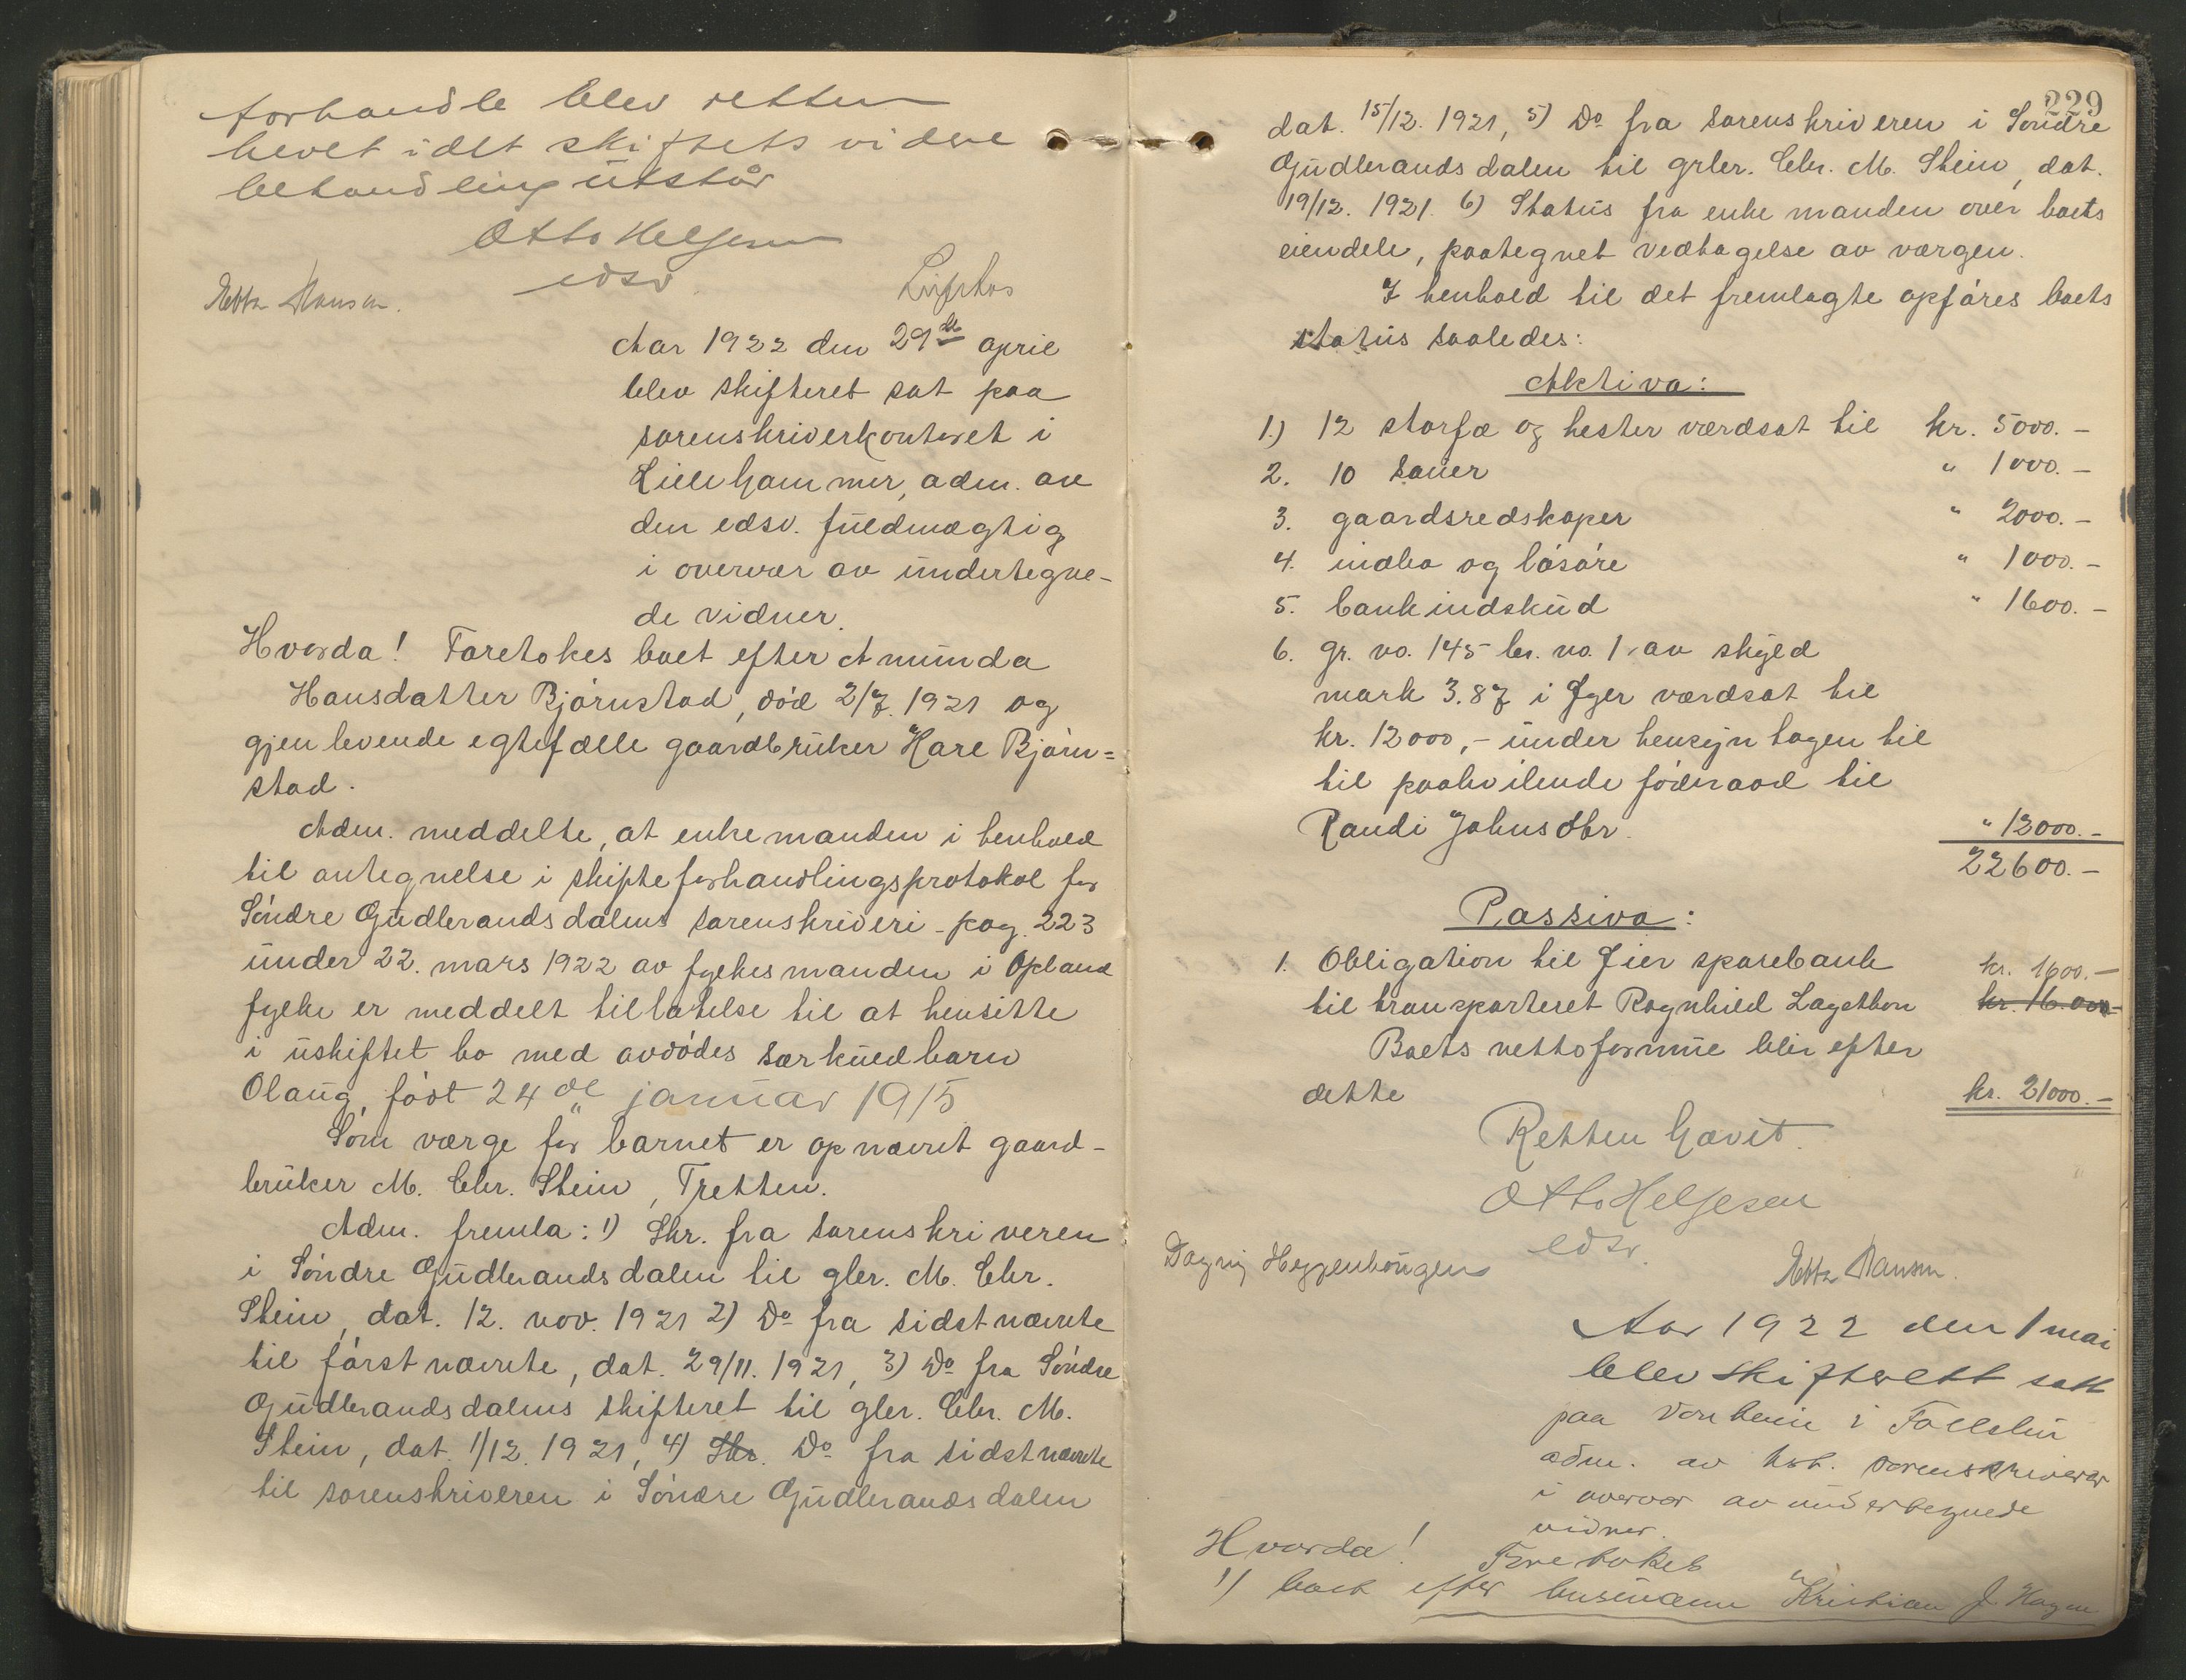 forhandle blev retten
hevet idet skiftets videre
behandling utstår
Otto Helgesen
edsv.
Aar 1922 den 29de april
blev skifteret sat paa
sorenskriverkontoret i
Lillehammer, adm. av
den edsv. fuldmægtig
i overvær av undertegne-
de vidner.
Hvorda! Foretokes boet efter Amunda
Hansdatter Bjørnstad, død 2/7. 1921 og
gjenlevende egtefælle gaardbruker Hare Bjørn=
stad.
Adm. meddelte, at enkemanden i henhold
til antegnelse i skifteforhandlingsprotokol for
Söndre Gudbrandsdalens sorenskriveri - pag. 223
under 22. mars 1922 av fylkesmanden i Opland
fylke er meddelt tillatelse til at hensitte
i uskiftet bo med avdødes særkuldbarn
Olaug, født 24de januar 1915
Som værge for barnet er opnævnt gaard-
bruker M. Chr. Stein, Tretten.
Adm. fremla: 1) Skr. fra sorenskriveren
i Söndre Gudbrandsdalen til gbr. M. Chr.
Stein, dat. 12. nov. 1921 2) Do fra sidstnævnte
til førstnævnte, dat. 29/11. 1921, 3) Do fra Söndre
Gudbrandsdalens skifteret til gbr. Chr. M.
Stein, dat. 1/12. 1921, 4) Skr. Do fra sidstnævnte
til sorenskriveren i Söndre Gudbrandsdalen
229
dat. 15/12. 1921, 5) Do fra sorenskriveren i Söndre
Gudbrandsdalen til grbr. Chr. M. Stein, dat.
19/12. 1921. 6) Status fra enkemanden over boets
eiendele, paategnet vedtagelse av værgen.
I henhold til det fremlagte opføres boets
status saaledes:
Aktiva:
1.) 12 storfæ og hester værdsat til kr. 5000.-
2. 10 sauer " 1000.-
3. gaardsredskaper " 2000.-
4. indbo og løsøre " 1000.-
5. bankindskud " 1600.-
6. gr. no. 145 br. no. 1 av skyld
mark 3.87 i Øyer værdsat til
kr. 12000,- under hensyn tagen til
til paahvilende føderaad til
Randi Johnsdtr. " 12000.-
22600.-
Passiva:
1. Obligation til Øier sparebank kr. 1600.-
til transporteret Ragnhild Lagethon kr. 16.000-
Boets nettoformue blir efter
dette kr. 21000.-
Retten hævet.
Otto Helgesen
edsv.
Dagny Heggenhougen
Aar 1922 den 1 mai
blev skifterett satt
paa Vonheim i Follebu
adm. av kst. sorenskriver
i overvær av undertegnede
vidner.
Hvorda! Foretokes
1) boet efter husmann Kristian J. Hagen